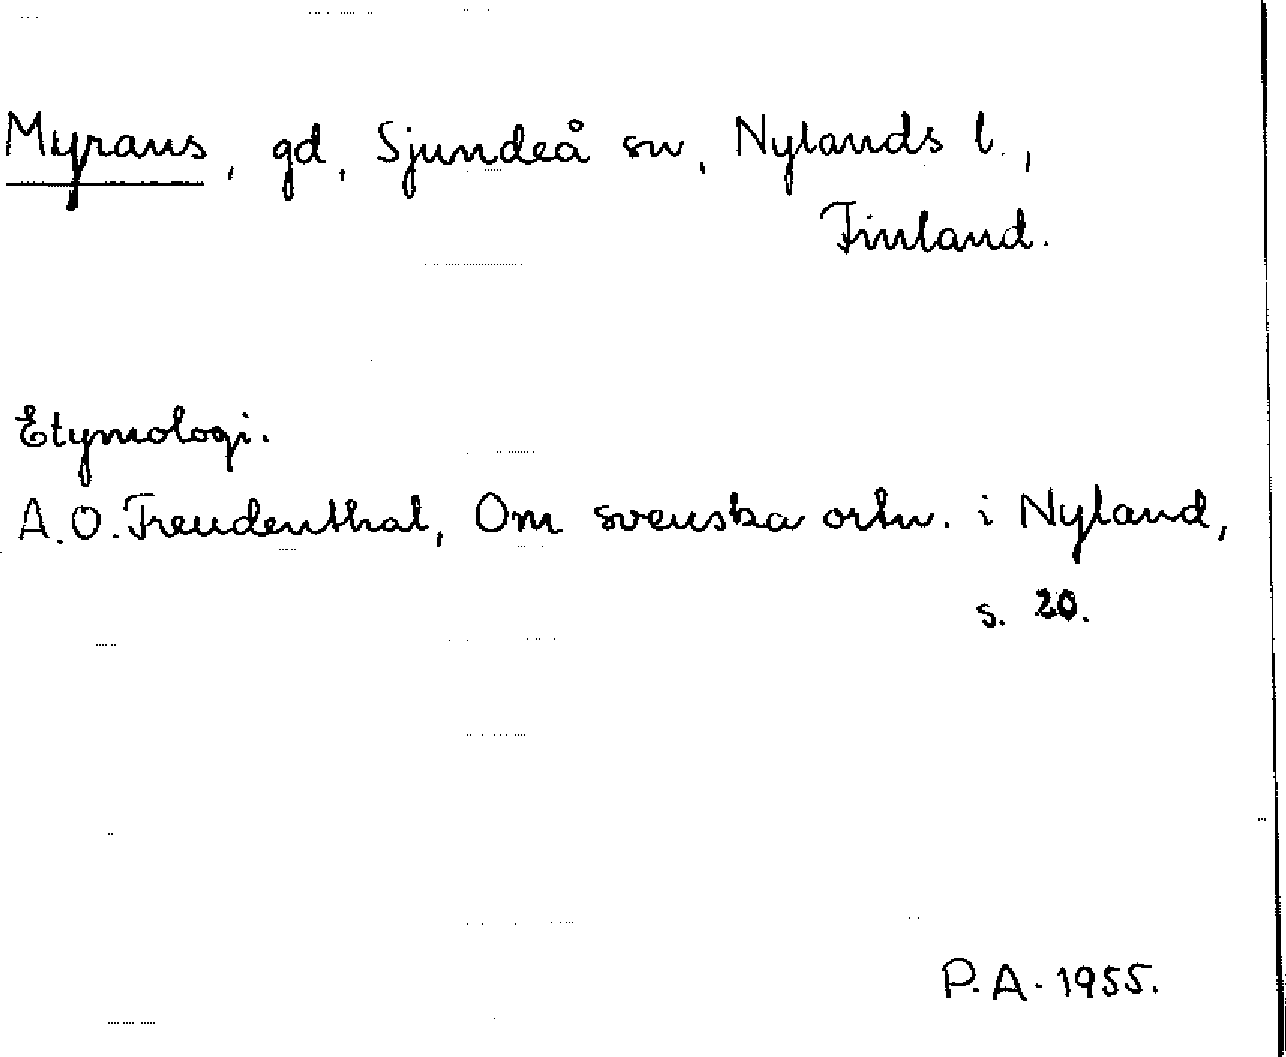 Myrans, gd, Sjundeå sn, Nylands l.,
Finland.
Etymologi.
A.O. Freudenthal, Om svenska ortn. i Nyland,
s. 20.
P.A. 1955.